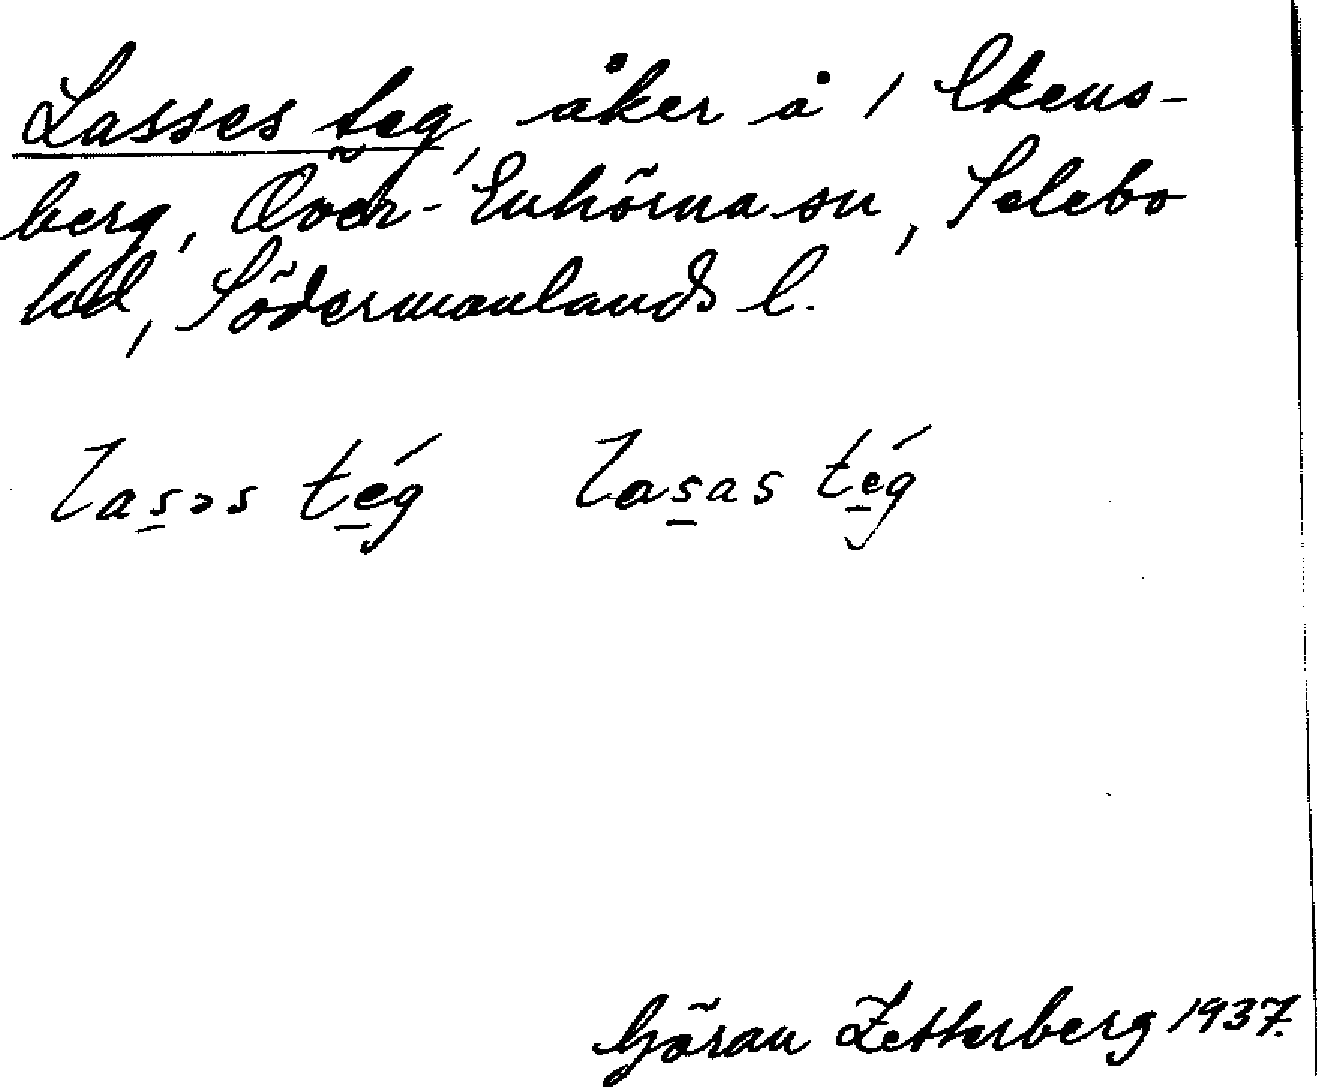 Lasses teg, åker å 1 Ekens-
berg, Över-Enhörna sn, Selebo
hd, Södermanlands l.
lasəs tég lasas tég
Göran Zetterberg 1937.